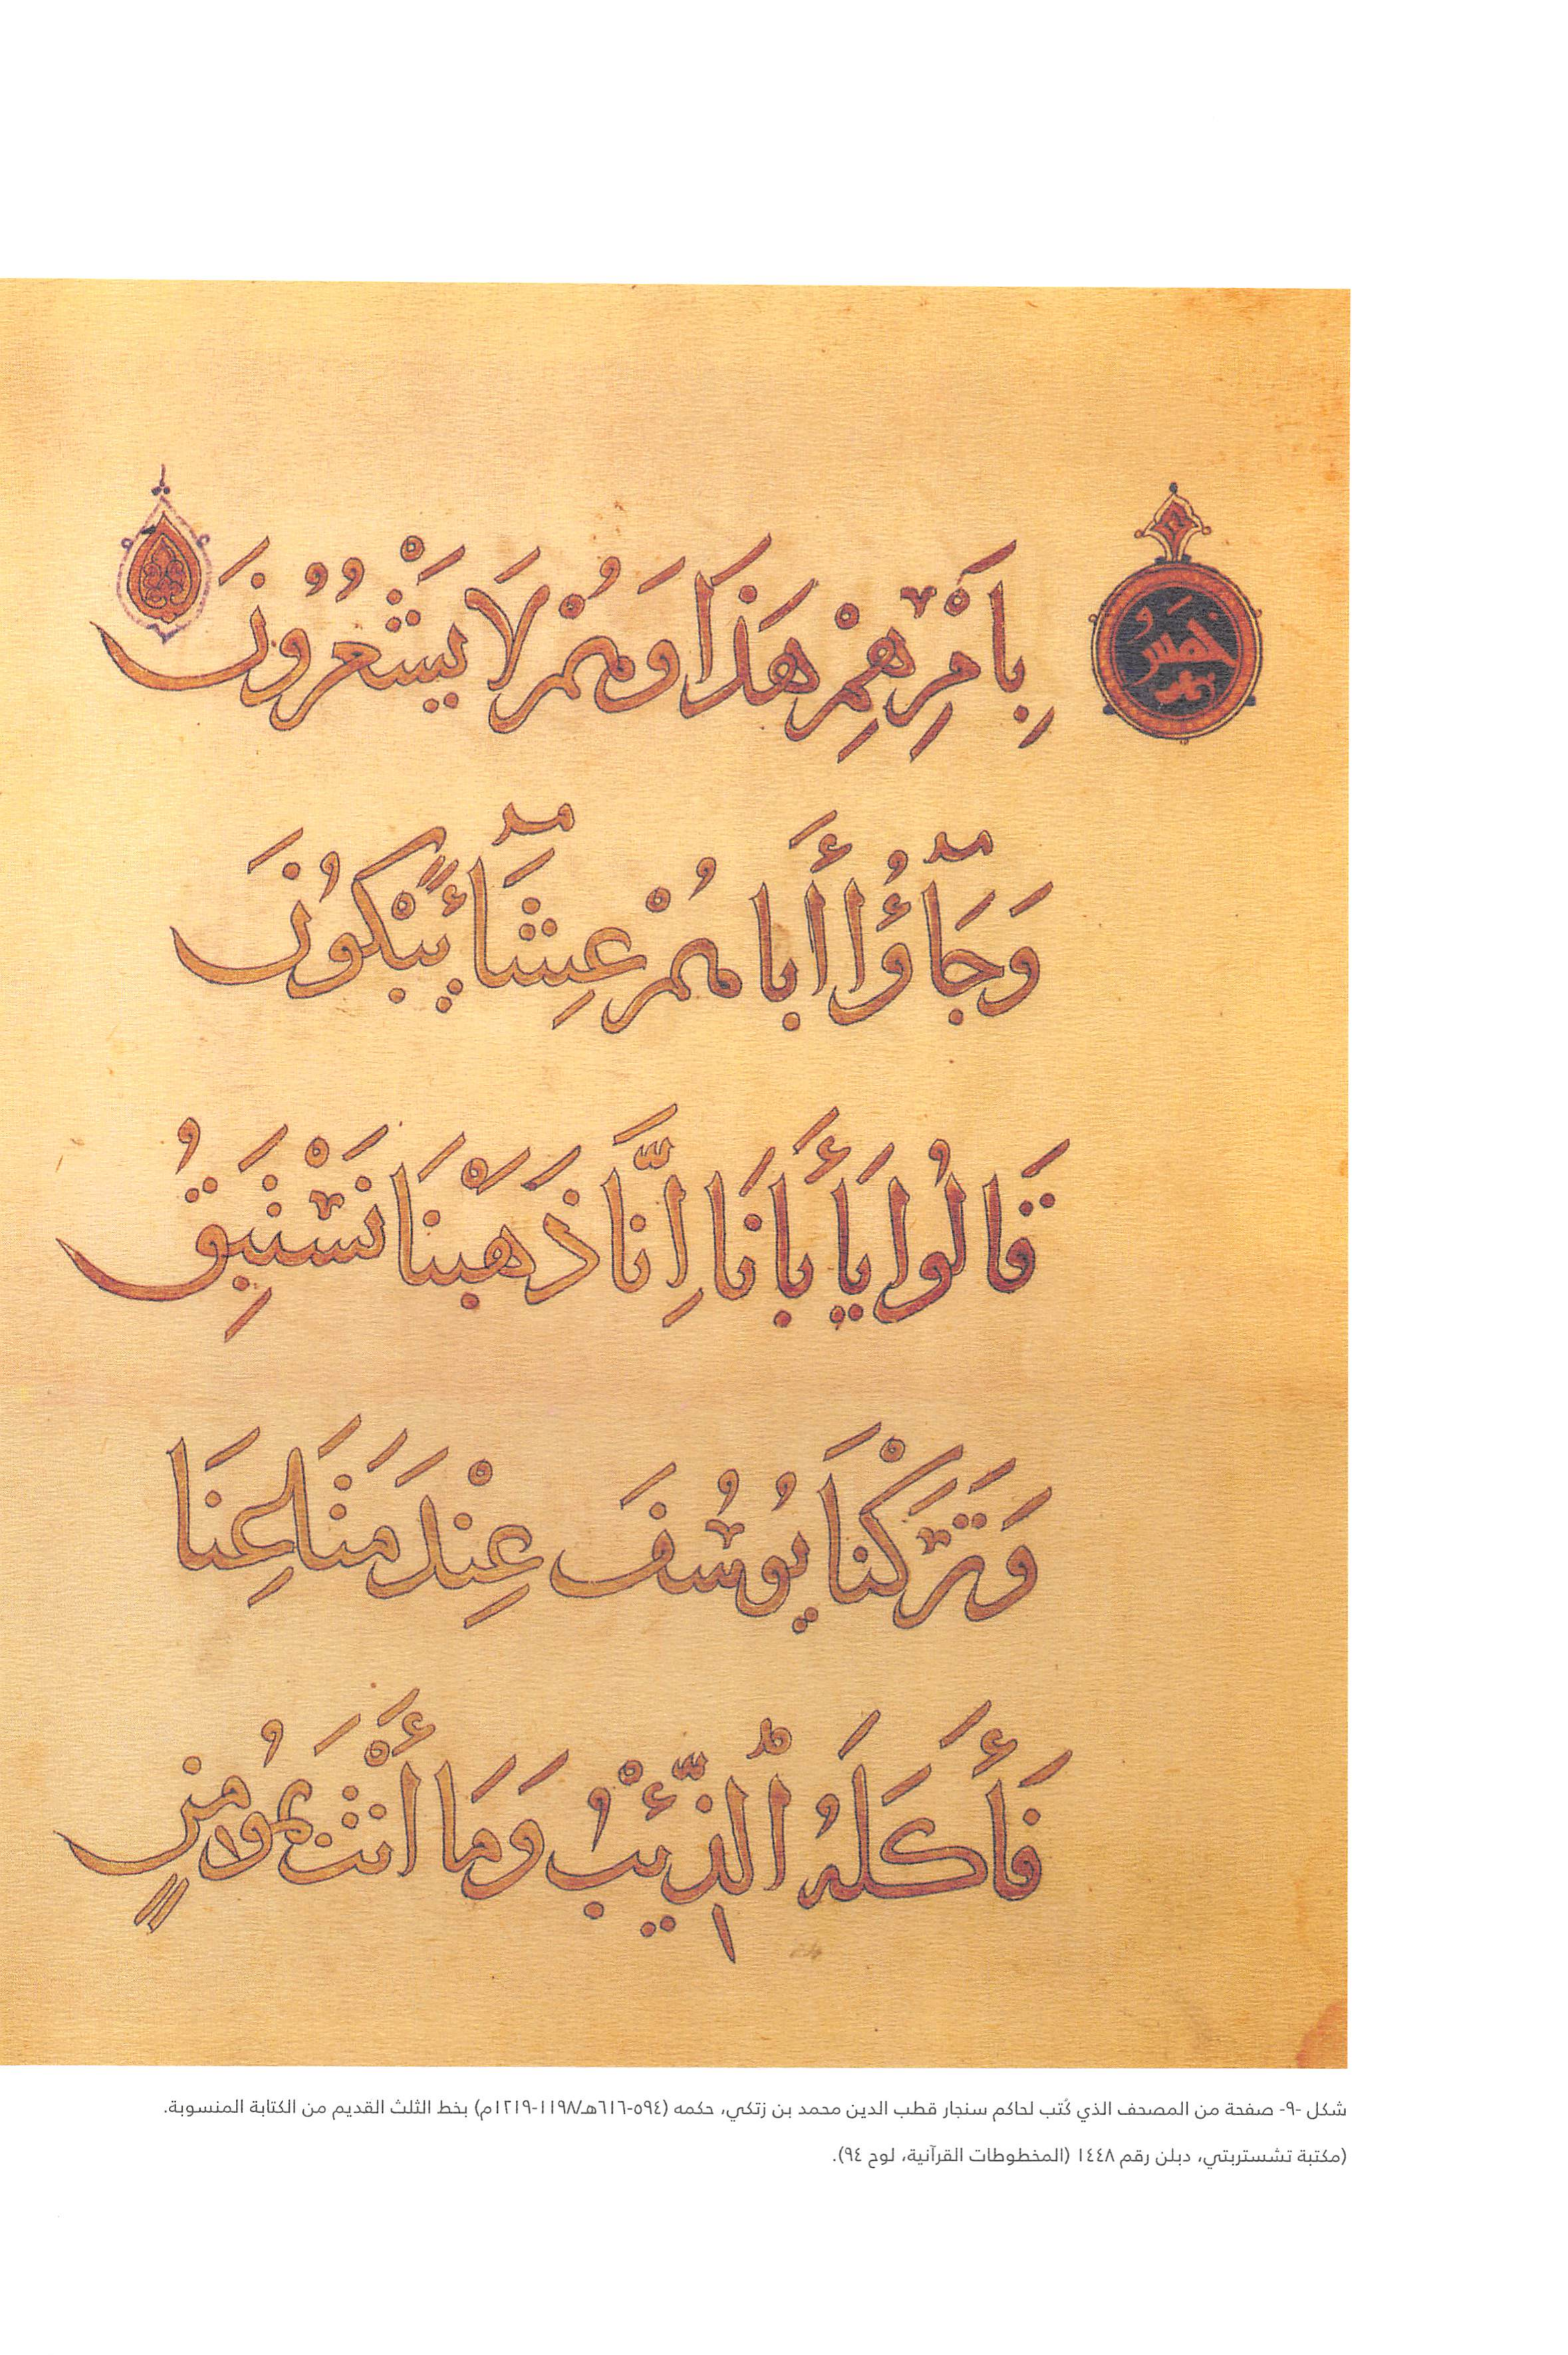 خمس
بِأَمْرِهِمْ هَذَا وَهُمْ لَا يَشْعُرُونَ
وَجَآؤُا أَبَاهُمْ عِشَآءً يَبْكُونَ
قَالُوا يَأَبَانَا إِنَّا ذَهَبْنَا نَسْتَبِقُ
وَتَرَكْنَا يُوسُفَ عِنْدَ مَتَاعِنَا
فَأَكَلَهُ ٱلذِّئْبُ وَمَا أَنْتَ بِمُؤْمِنٍ
شكل -٩- صفحة من المصحف الذي كُتب لحاكم سنجار قطب الدين محمد بن زتكي، حكمه (٥٩٤-٦١٦هـ/١١٩٨-١٢١٩م) بخط الثلث القديم من الكتابة المنسوبة.
(مكتبة تشستربتي، دبلن رقم ١٤٤٨ (المخطوطات القرآنية، لوح ٩٤).